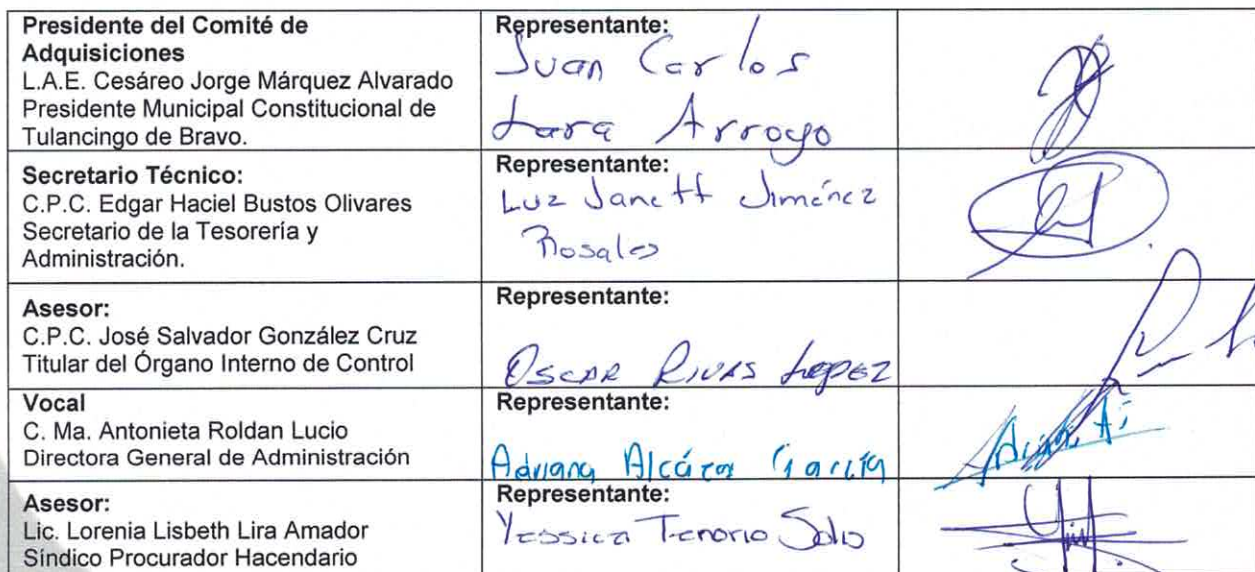 Presidente del Comité de
Adquisiciones
L.A.E. Cesáreo Jorge Márquez Alvarado
Presidente Municipal Constitucional de
Tulancingo de Bravo.
Representante:
Juan Carlos
Lara Arroyo
Secretario Técnico:
C.P.C. Edgar Haciel Bustos Olivares
Secretario de la Tesorería y
Administración.
Representante:
Luz Janett Jiménez
Rosales
Asesor:
C.P.C. José Salvador González Cruz
Titular del Órgano Interno de Control
Representante:
OSCAR RIVAS LOPEZ
Vocal
C. Ma. Antonieta Roldan Lucio
Directora General de Administración
Representante:
Adriana Alcázar García
Asesor:
Lic. Lorenia Lisbeth Lira Amador
Síndico Procurador Hacendario
Representante:
Yessica Tenorio Solis